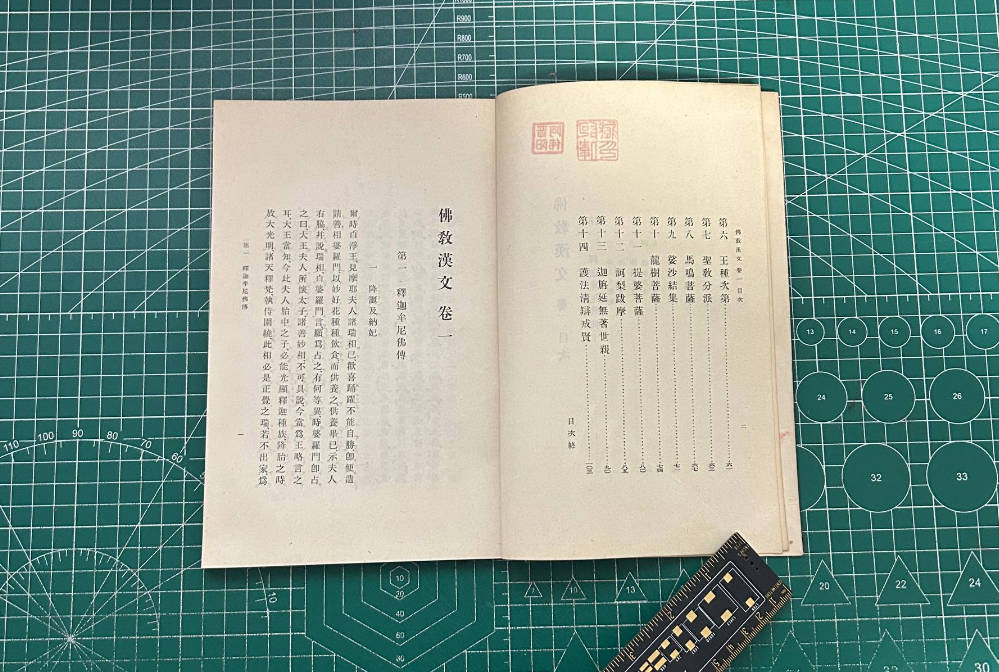 佛教漢文 卷一 目次
第六 王種次第
第七 聖教分派
第八 馬鳴菩薩
第九 娑沙結集
第十 龍樹菩薩
第十一 提婆菩薩
第十二 訶梨跋摩
第十三 迦旃延無著世親
第十四 護法清辯戒賢
目次終
二
佛教漢文 卷一
第一 釋迦牟尼佛傳
一 降誕及納妃
爾時白淨王見摩耶夫人諸瑞相已歡喜踊躍不能自勝卽便遣
請善相婆羅門以妙好花種種飲食而供養之供養畢已示夫人
右脇幷說瑞相白婆羅門言願爲占之有何等異時婆羅門卽占
之曰大王夫人所懷太子諸善妙相不可具說今當爲王略言之
耳大王當知今此夫人胎中之子必能光顯釋迦種族降胎之時
放大光明諸天釋梵執侍圍繞此相必是正覺之瑞若不出家爲
第一 釋迦牟尼佛傳
一
R900
R800
R700
R600
13
14
15
16
17
24
25
26
32
33
110
100
90
80
70
60
10
20
30
20
22
24
30